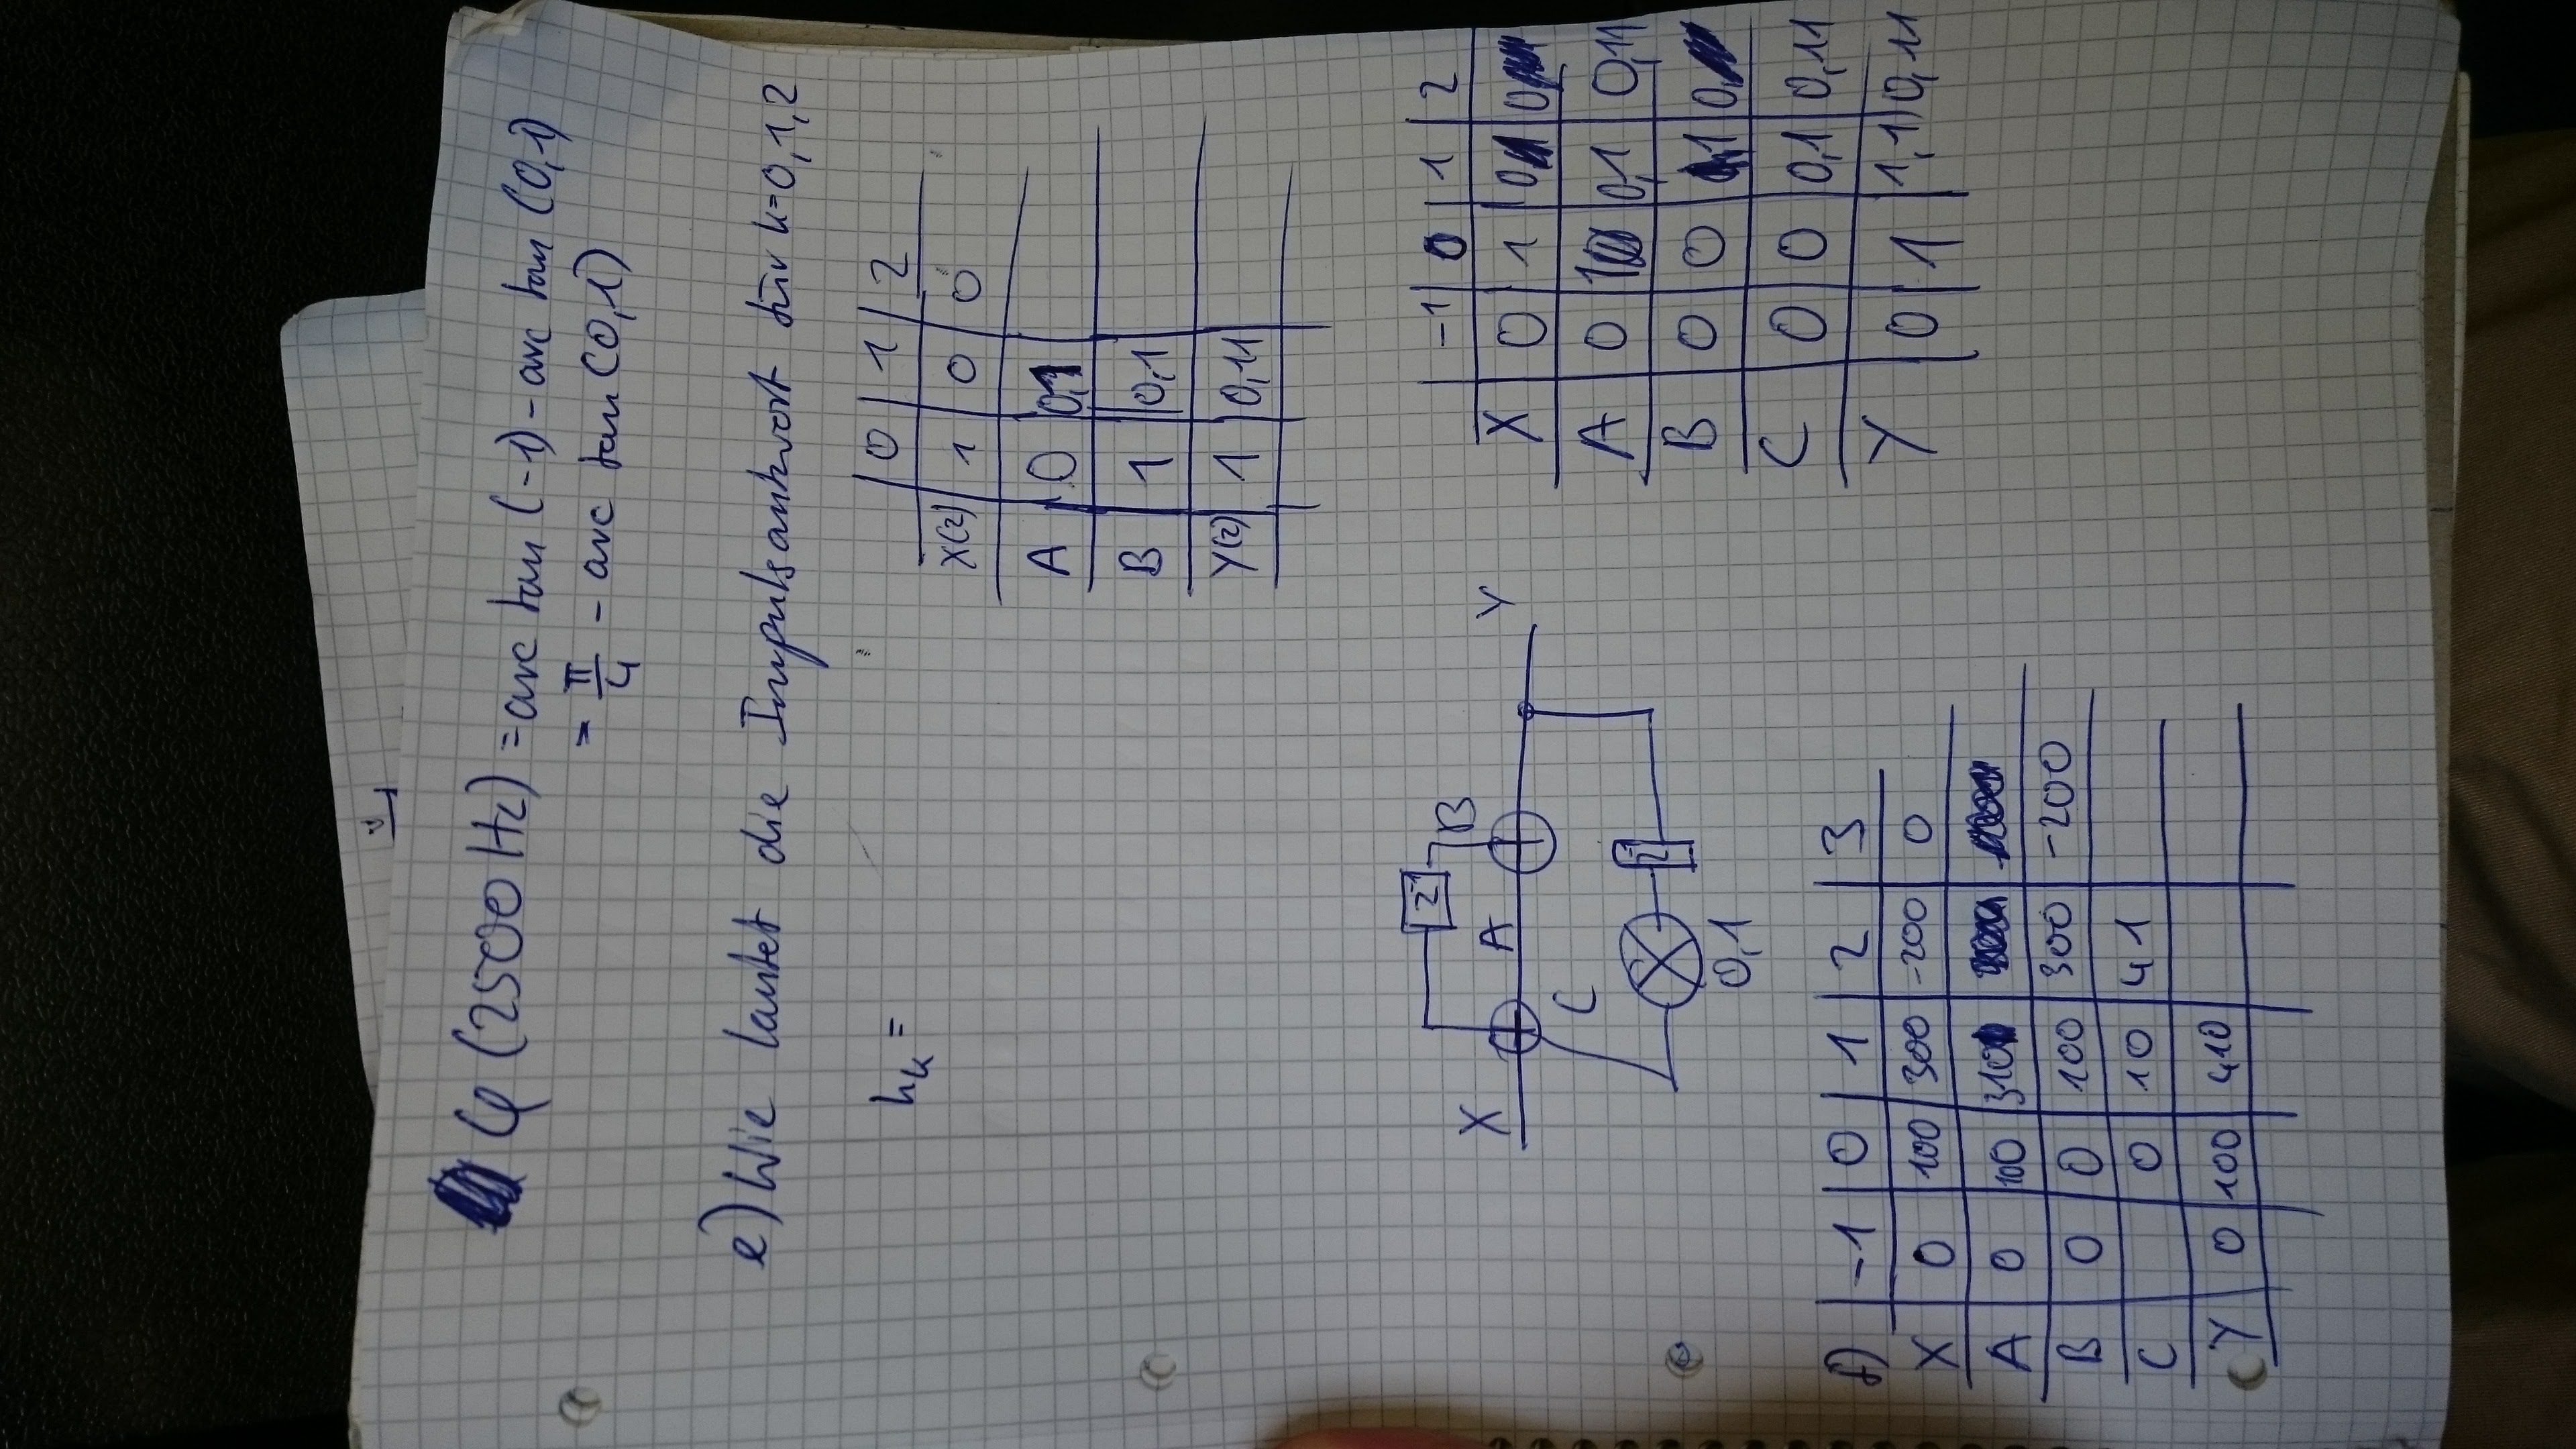 φ (2500 Hz) = arc tan (-1) - arc tan (0,1)
= π/4 - arc tan (0,1)
e) Wie lautet die Impulsantwort für k=0,1,2
hk =
0 | 1 | 2
X(z) 1 0 0
A 0 0,1
B 1 0,1
Y(z) 1 0,11
X A B Y
z⁻¹
C
z⁻¹
0,1
-1 | 0 | 1 | 2
X 0 1 0 0
A 0 1 0,1 0,11
B 0 0 1 0
C 0 0 0,1 0,11
Y 0 1 1,1 0,11
f) -1 | 0 | 1 | 2 | 3
X 0 100 300 -200 0
A 0 100 310
B 0 0 100 300 -200
C 0 10 41
Y 0 100 410